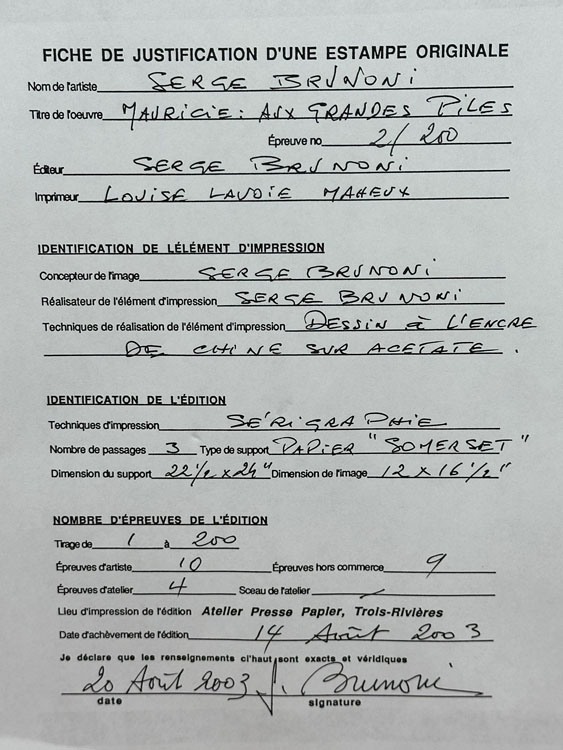 FICHE DE JUSTIFICATION D'UNE ESTAMPE ORIGINALE
Nom de l'artiste SERGE BRUNONI
Titre de l'oeuvre MAURICIE: AUX GRANDES PILES
Épreuve no 2/200
Éditeur SERGE BRUNONI
Imprimeur LOUISE LAVOIE MAHEUX
IDENTIFICATION DE LÉLÉMENT D'IMPRESSION
Concepteur de l'image SERGE BRUNONI
Réalisateur de l'élément d'impression SERGE BRUNONI
Techniques de réalisation de l'élément d'impression DESSIN à L'ENCRE
DE CHINE SUR ACETATE.
IDENTIFICATION DE L'ÉDITION
Techniques d'impression SÉRIGRAPHIE
Nombre de passages 3 Type de support PAPIER "SOMERSET"
Dimension du support 22 1/2 x 24" Dimension de l'image 12 x 16 1/2"
NOMBRE D'ÉPREUVES DE L'ÉDITION
Tirage de 1 à 200
Épreuves d'artiste 10 Épreuves hors commerce 9
Épreuves d'atelier 4 Sceau de l'atelier
Lieu d'impression de l'édition Atelier Presse Papier, Trois-Rivières
Date d'achèvement de l'édition 14 Août 2003
Je déclare que les renseignements ci'haut sont exacts et véridiques
20 Août 2003 S. Brunoni
date signature